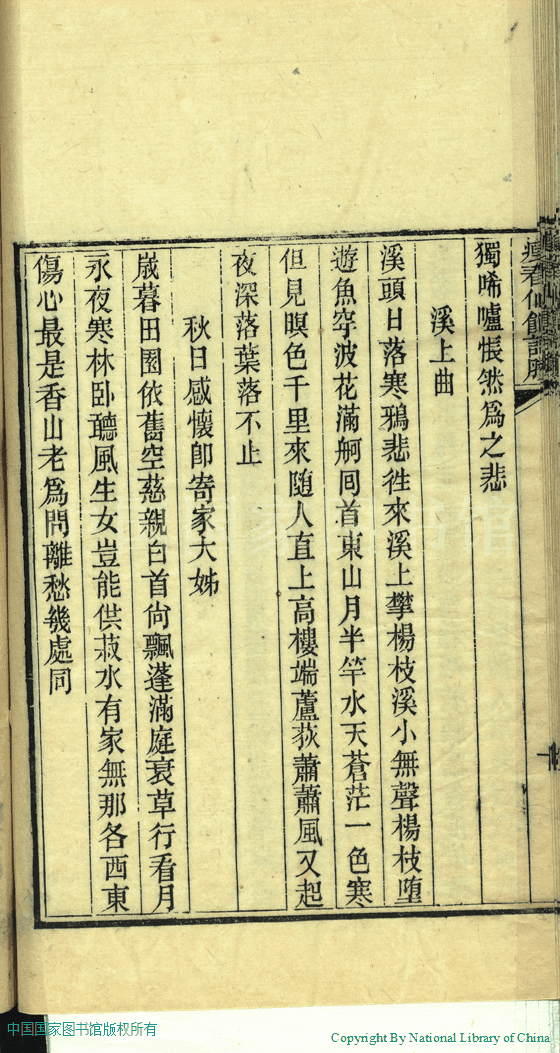 獨唏噓悵然爲之悲
溪上曲
溪頭日落寒鴉悲徃來溪上攀楊枝溪小無聲楊枝墮
遊魚穿波花滿舸囘首東山月半竿水天蒼茫一色寒
但見暝色千里來隨人直上高樓端蘆荻蕭蕭風又起
夜深落葉落不止
秋日感懷卽寄家大姊
歲暮田園依舊空慈親白首尙飄蓬滿庭衰草行看月
永夜寒林卧聽風生女豈能供菽水有家無那各西東
傷心最是香山老爲問離愁幾處同
中国国家图书馆版权所有
Copyright By National Library of China